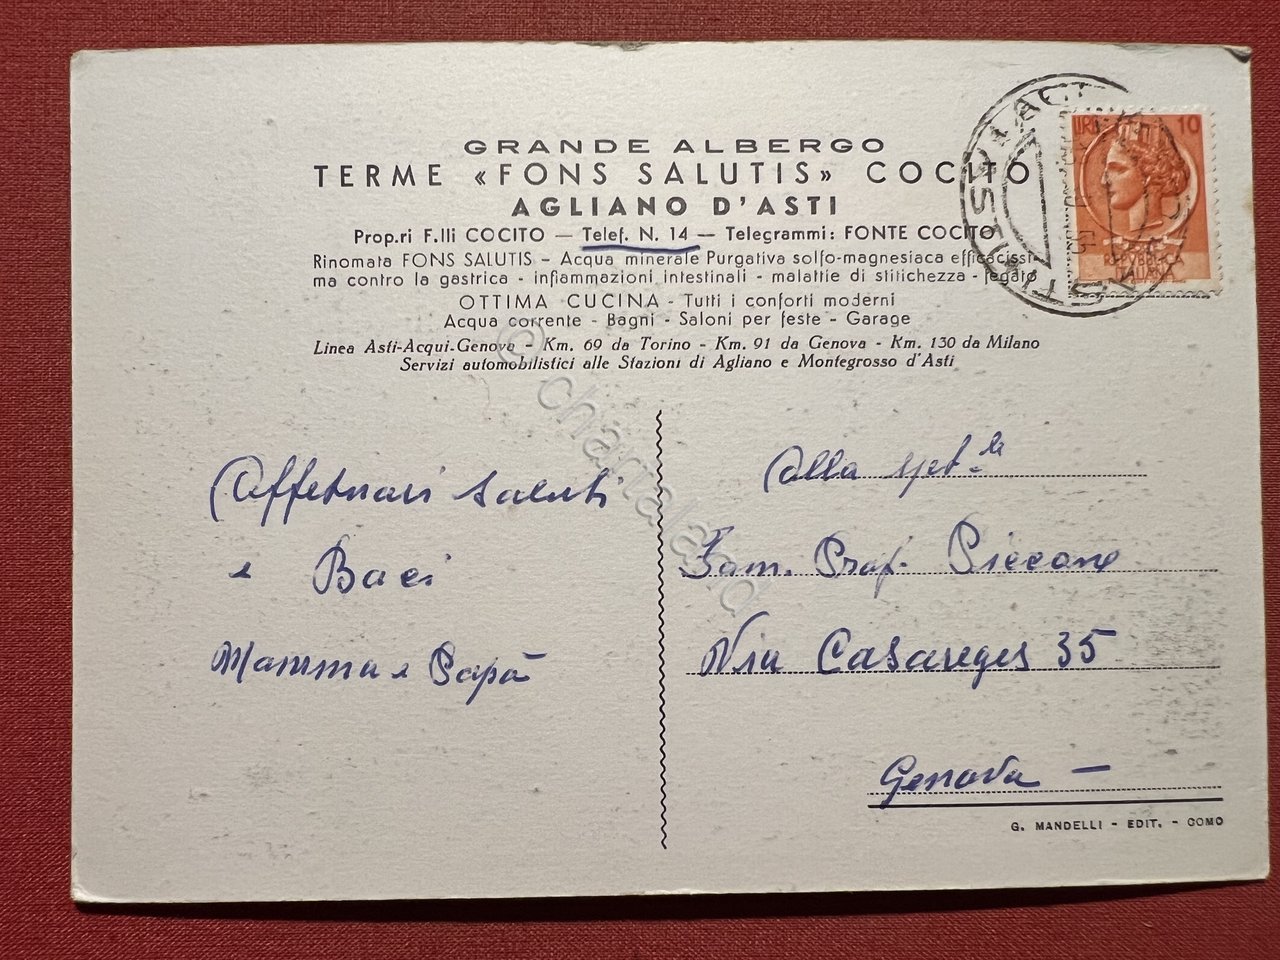 GRANDE ALBERGO
TERME «FONS SALUTIS» COCITO
AGLIANO D'ASTI
Prop.ri F.lli COCITO — Telef. N. 14 — Telegrammi: FONTE COCITO
Rinomata FONS SALUTIS - Acqua minerale Purgativa solfo-magnesiaca efficacissi-
ma contro la gastrica - infiammazioni intestinali - malattie di stitichezza - fegato
OTTIMA CUCINA - Tutti i conforti moderni
Acqua corrente - Bagni - Saloni per feste - Garage
Linea Asti-Acqui-Genova - Km. 69 da Torino - Km. 91 da Genova - Km. 130 da Milano
Servizi automobilistici alle Stazioni di Agliano e Montegrosso d'Asti
LIRE 10
REPVBBLICA
ITALIANA
Affettuosi saluti
e Baci
Mamma e Papà
Alla Spet.le
Fam. Prof. Piccone
Via Casareges 35
Genova -
G. MANDELLI - EDIT. - COMO
© chartaland